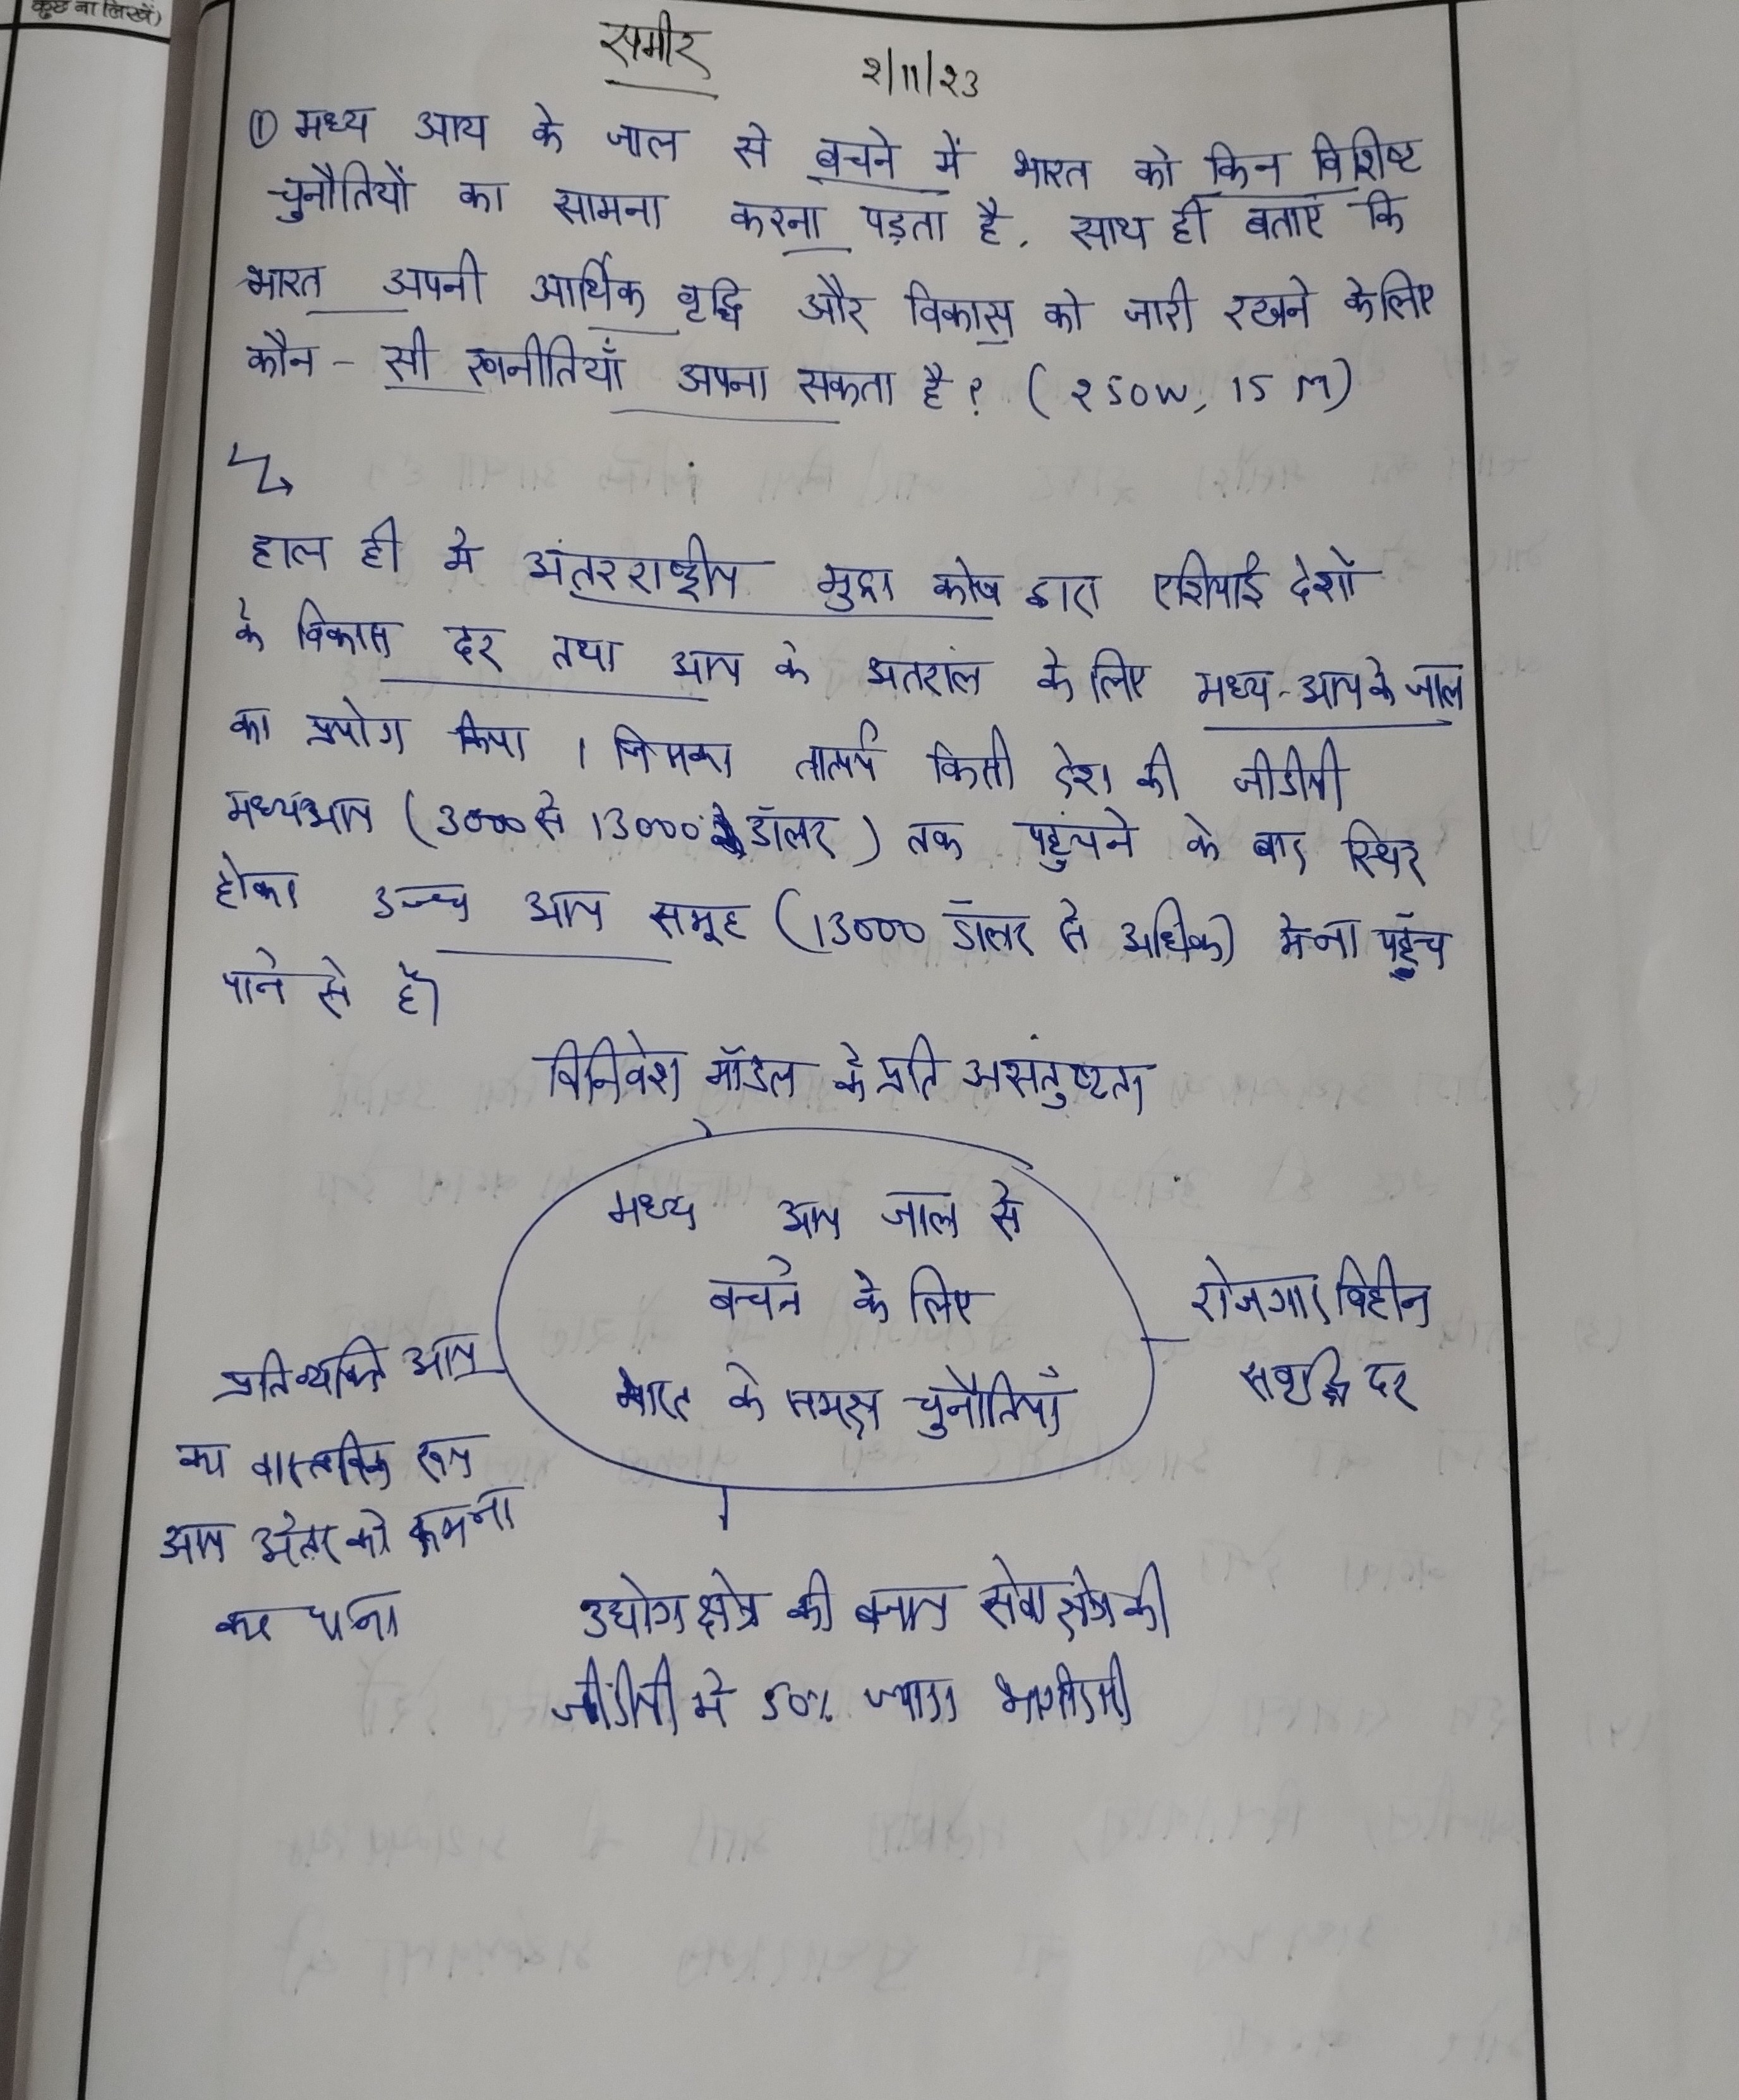 कुछ ना लिखें)
समीर
२/11/२3
① मध्य आय के जाल से बचने में भारत को किन विशिष्ट
चुनौतियों का सामना करना पड़ता है. साथ ही बताएं कि
भारत अपनी आर्थिक वृद्धि और विकास को जारी रखने के लिए
कौन - सी रणनीतियाँ अपना सकता है? (२50W, 15 M)
हाल ही मे अंतरराष्ट्रीय मुद्रा कोष द्वारा एशियाई देशों
के विकास दर तथा आय के अतराल के लिए मध्य-आय के जाल
का प्रयोग किया । जिसका तात्पर्य किसी देश की जीडीपी
मध्यआय (3000 से 13000 डॉलर) तक पहुंचने के बाद स्थिर
होकर उच्च आय समूह (13000 डॉलर से अधिक) मे ना पहुँच
पाने से है।
विनिवेश मॉडल के प्रति असंतुष्टता
मध्य आय जाल से
बचने के लिए
भारत के समक्ष चुनौतियाँ
रोजगार विहीन
सवृद्धि दर
प्रतिव्यक्ति आय
का वास्तविक रूप
आय अंतर को कम ना
कर पाना
उद्योग क्षेत्र की बजाय सेवा क्षेत्र की
जीडीपी मे 50% ज्यादा भागीदारी